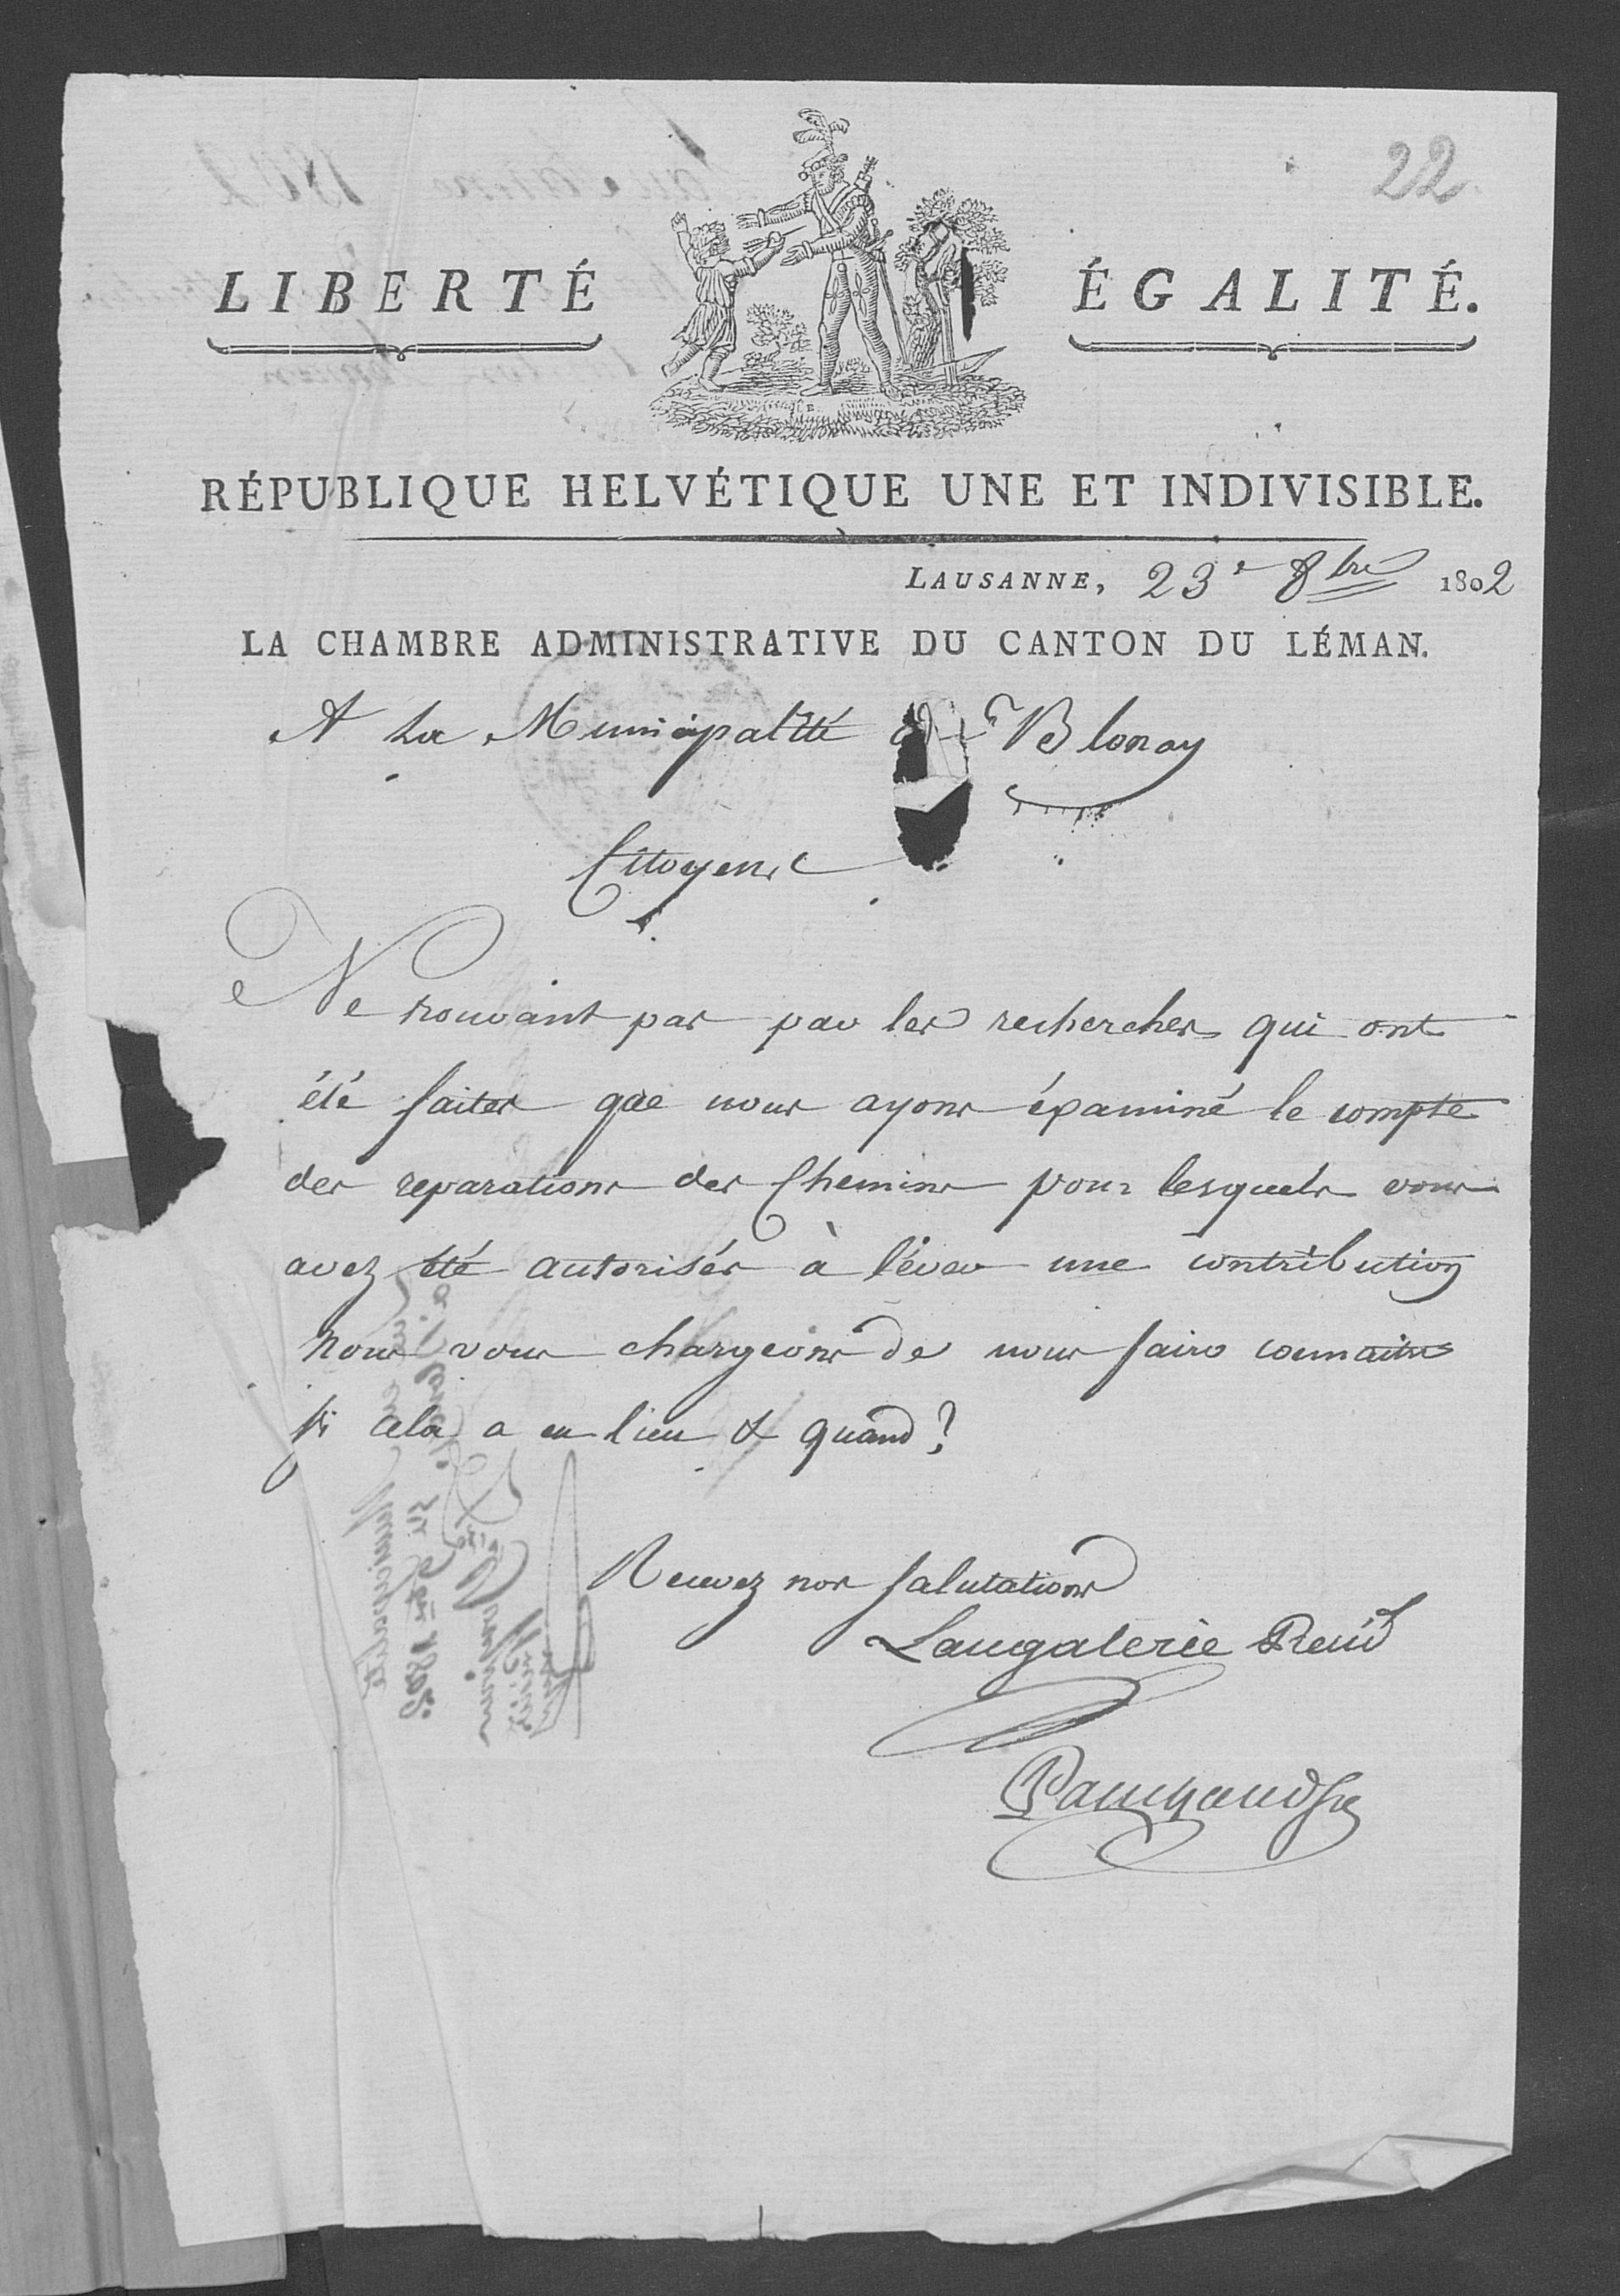 22
LIBERTÉ ÉGALITÉ.
RÉPUBLIQUE HELVÉTIQUE UNE ET INDIVISIBLE.
LAUSANNE, 23e 8bre 1802
LA CHAMBRE ADMINISTRATIVE DU CANTON DU LÉMAN.
A La Municipalité de Blonay
Citoyens
Ne trouvant pas par les recherches qui ont
été faites que nous ayons éxaminé le compte
des reparations des Chemins pour lesquels vous
avez été autorisés à léver une contribution
nous vous chargeons de nous faire connaitre
si cela a eu lieu & quand?
Recevez nos salutations
Langalerie Presid